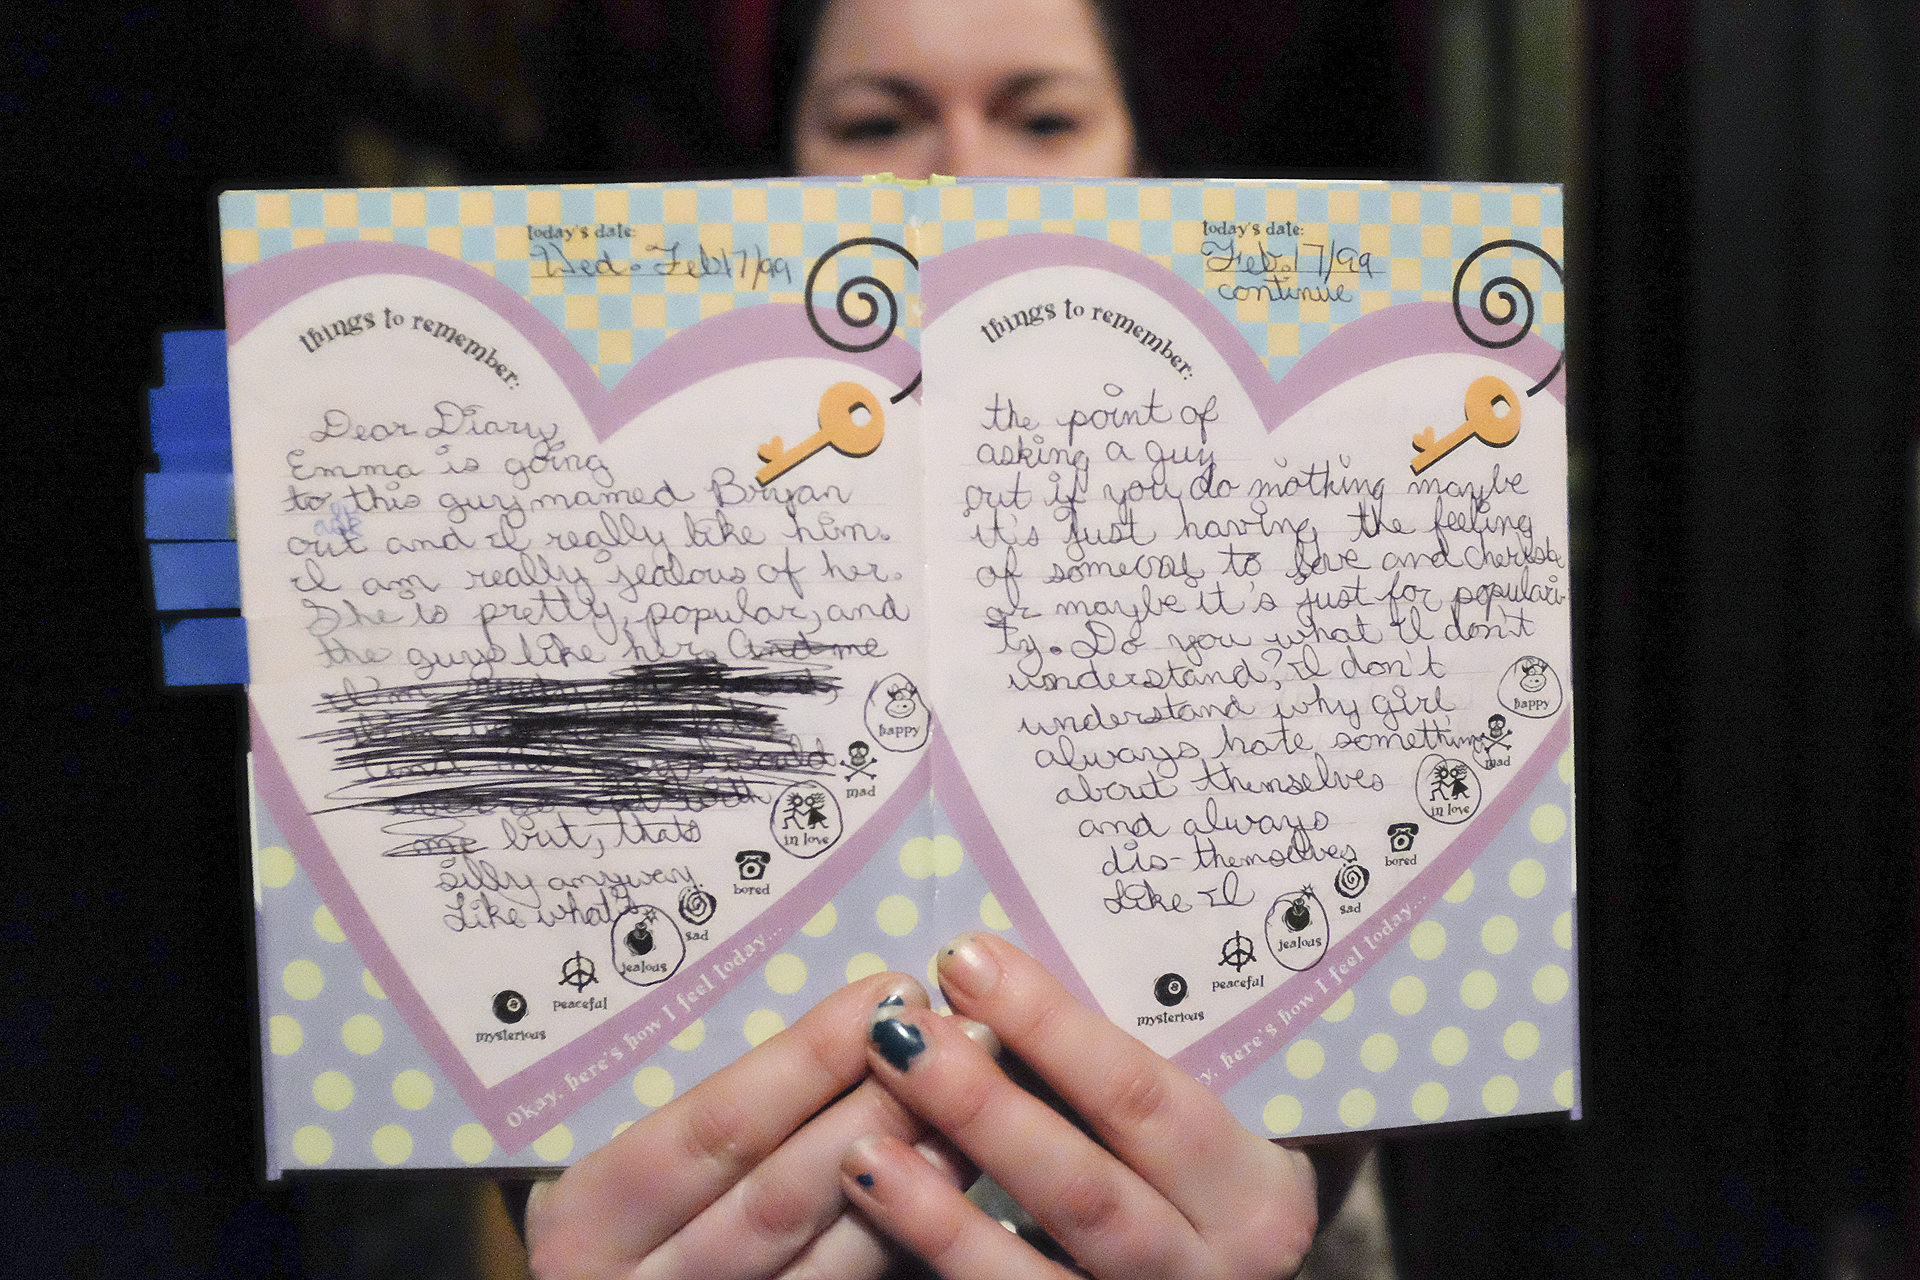 today's date:
Wed. Feb 17/99
things to remember:
Dear Diary
Emma is going
to this guy named Bryan
ask
out and I really like him.
I am really jealous of her.
She is pretty, popular, and
the guys like her. And me
I'm
would
with
me but, thats
silly anyway.
Like what's
happy
mad
in love
bored
sad
jealous
peaceful
mysterious
Okay, here's how I feel today...
today's date:
Feb. 17/99
continue
things to remember:
the point of
asking a guy
out if you do nothing maybe
it's just having the feeling
of someone to love and cherish
or maybe it's just for populari-
ty. Do you what I don't
understand? I don't
understand why girl
always hate something
about themselves
and always
dis-themselves
Like I
happy
mad
in love
bored
sad
jealous
peaceful
mysterious
here's how I feel today...